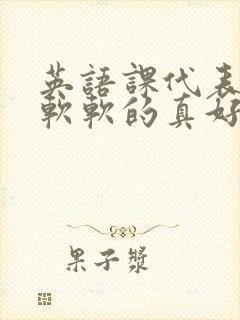 英語課代表
軟軟的真好
果子漿